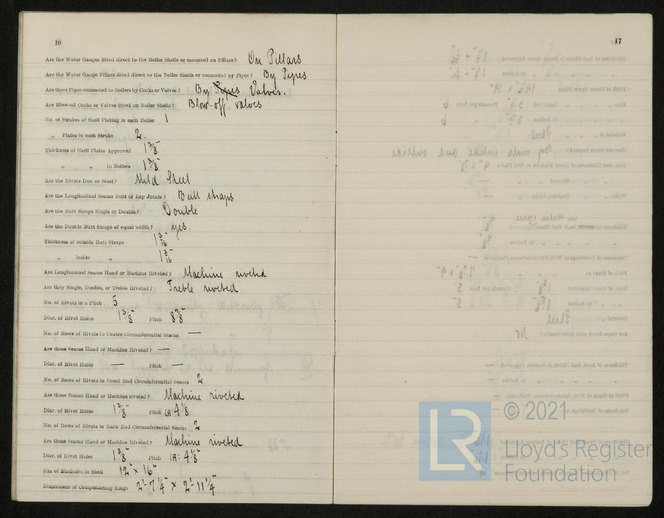 16
Are the Water Gauges fitted direct to the Boiler Shells or mounted on Pillars? On Pillars
Are the Water Gauge Pillars fitted direct to the Boiler Shells or connected by Pipes? By Pipes
Are these Pipes connected to Boilers by Cocks or Valves? By Pipes Valves.
Are Blow-off Cocks or Valves fitted on Boiler Shells? Blow-off valves
No. of Strakes of Shell Plating in each Boiler 1
„ Plates in each Strake 2
Thickness of Shell Plates Approved
„ „ in Boilers
Are the Rivets Iron or Steel? Mild Steel
Are the Longitudinal Seams Butt or Lap Joints? Butt straps
Are the Butt Straps Single or Double? Double
Are the Double Butt Straps of equal width? yes.
Thickness of outside Butt Straps
„ inside „
Are Longitudinal Seams Hand or Machine Riveted? Machine riveted
Are they Single, Double, or Treble Riveted? Treble riveted
No. of Rivets in a Pitch 5
Diar. of Rivet Holes Pitch
No. of Rows of Rivets in Centre Circumferential Seams —
Are these Seams Hand or Machine Riveted? —
Diar. of Rivet Holes — Pitch —
No. of Rows of Rivets in Front End Circumferential Seams 2
Are these Seams Hand or Machine riveted? Machine riveted
Diar. of Rivet Holes Pitch
No. of Rows of Rivets in Back End Circumferential Seams 2
Are these Seams Hand or Machine Riveted? Machine riveted
Diar. of Rivet Holes Pitch
Size of Manholes in Shell 12" × 16"
Dimensions of Compensating Rings 2'-7¼" × 2'-11¼"
17
LR
© 2021
Lloyd's Register
Foundation